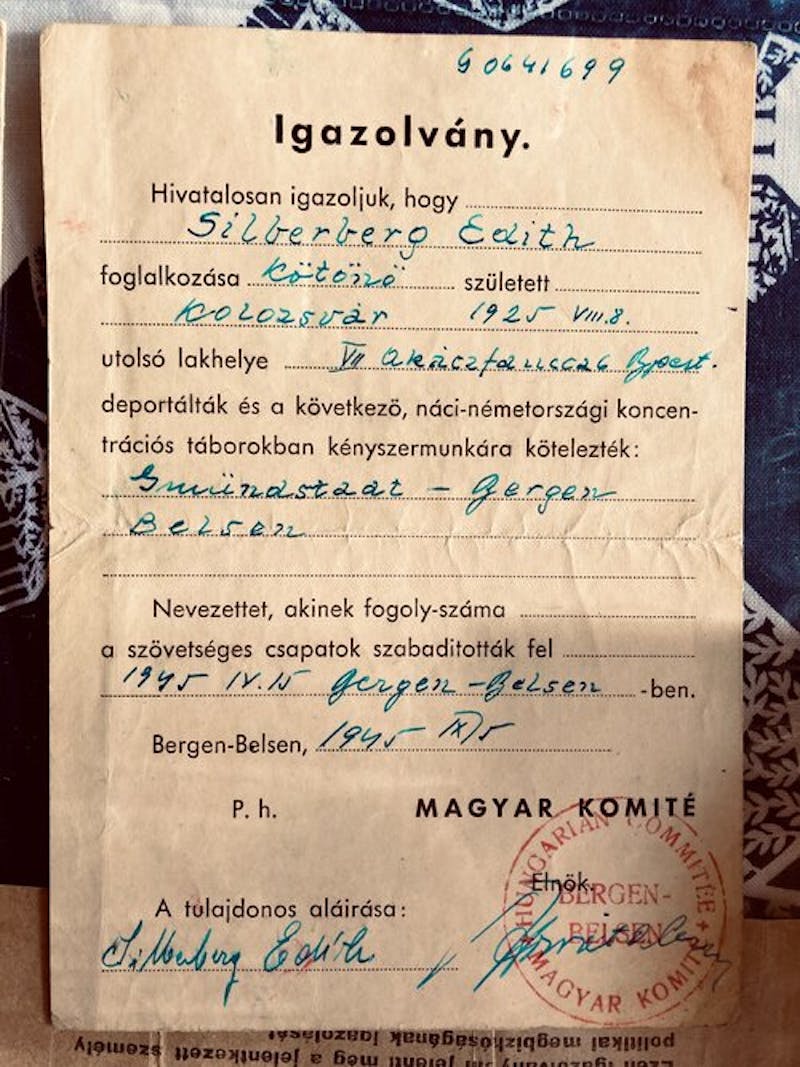 G0641699
Igazolvány.
Hivatalosan igazoljuk, hogy
Silberberg Edith
foglalkozása Kötönö született
Kolozsvár 1925 VIII.8.
utolsó lakhelye VII Bpest.
deportálták és a következö, náci-németországi koncen-
trációs táborokban kényszermunkára kötelezték:
Gmündstadt - Gergen
Belsen
Nevezettet, akinek fogoly-száma
a szövetséges csapatok szabaditották fel
1945 IV.15 Gergen-Belsen -ben.
Bergen-Belsen, 1945 IX/5
P. h. MAGYAR KOMITÉ
Elnök.
HUNGARIAN COMMITEE
BERGEN-
BELSEN
MAGYAR KOMITÉ
A tulajdonos aláirása:
Silberberg Edith
Ezen igazolvány nem jelenti még a jelentkezett személy
politikai megbizhóságának igazolását